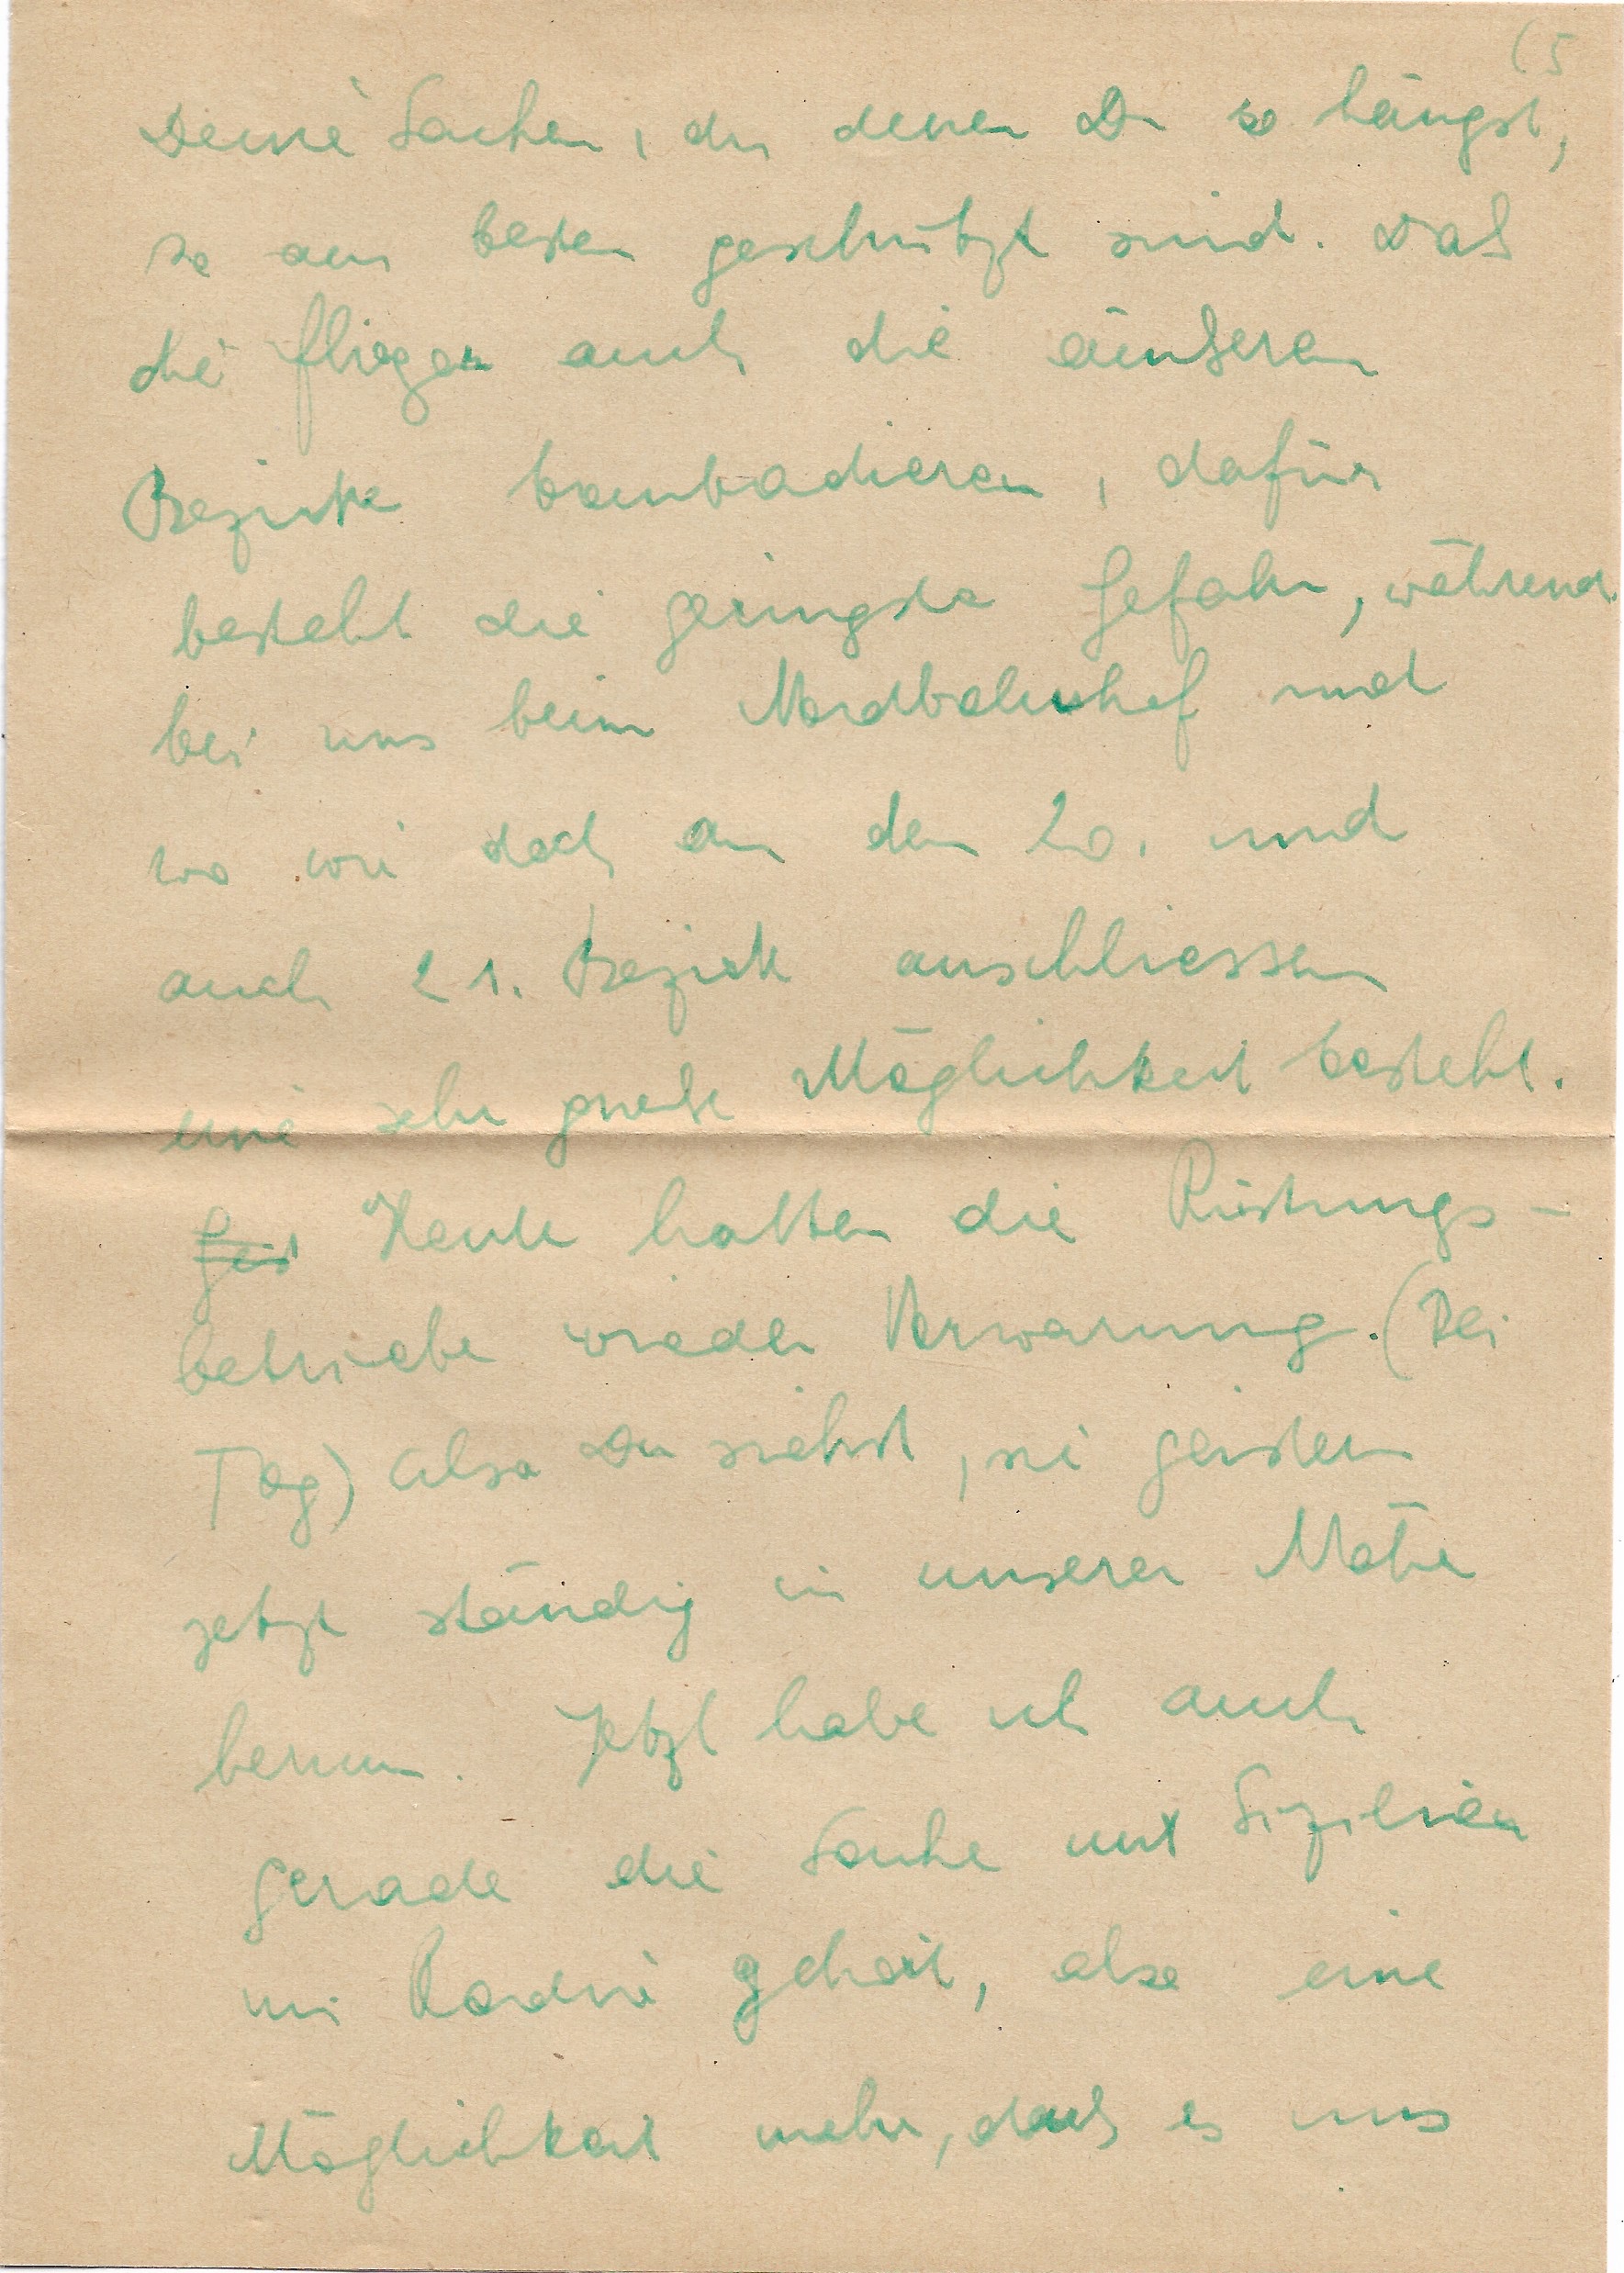 (5
Deine Sachen, an denen Du so hängst,
so am besten geschützt sind. Daß
die Flieger auch die äußeren
Bezirke bombadieren, dafür
besteht die geringste Gefahr, während
bei uns beim Nordbahnhof und
wo wir doch an den 20. und
auch 21. Bezirk anschliessen
eine sehr große Möglichkeit besteht.
Heute hatten die Rüstungs-
betriebe wieder Vorwarnung. (Bei
Tag) Also Du siehst, sie geistern
jetzt ständig in unserer Nähe
herum. Jetzt habe ich auch
gerade die Sache mit Sizilien
im Radio gehört, also eine
Möglichkeit mehr, daß es uns